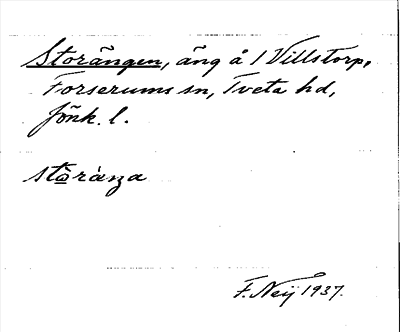 Storängen, äng å 1 Villstorp,
Forserums sn, Tveta hd,
Jönk. l.
F. Neij 1937.